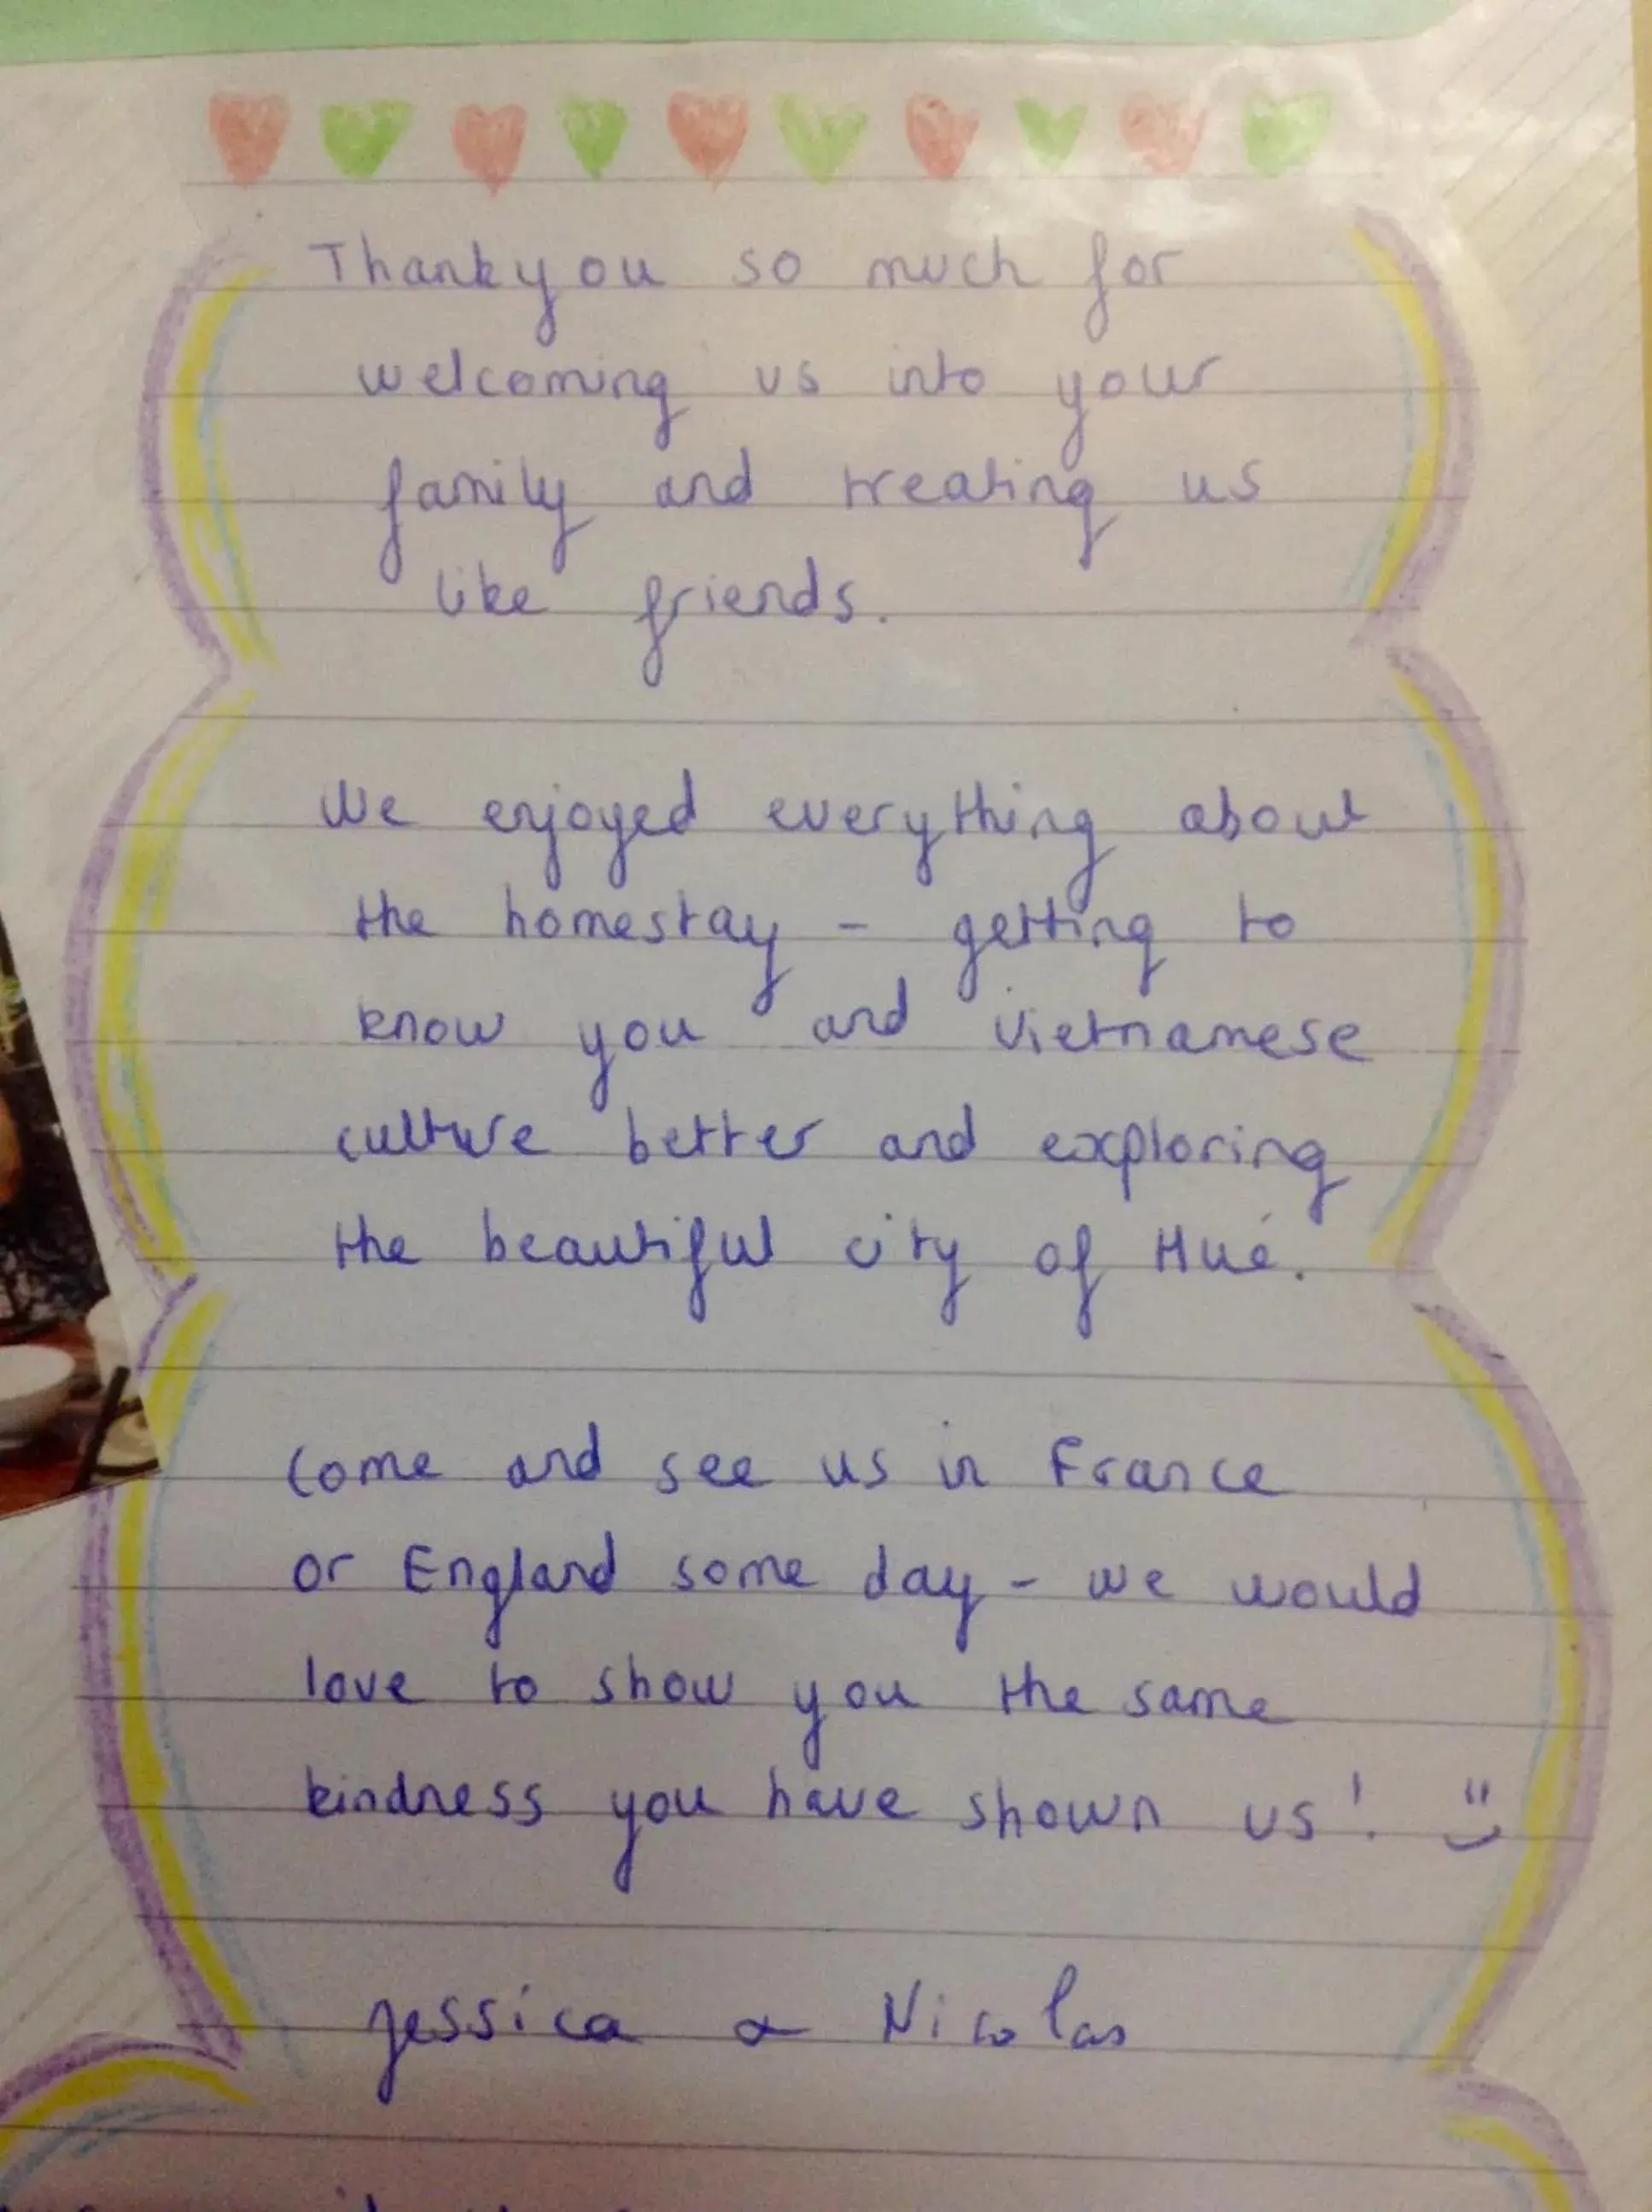 Thankyou so much for
welcoming us into your
family and treating us
like friends.
We enjoyed everything about
the homestay - getting to
know you and Vietnamese
culture better and exploring
the beautiful city of Hué.
Come and see us in France
or England some day - we would
love to show you the same
kindness you have shown us! :)
Jessica & Nicolas